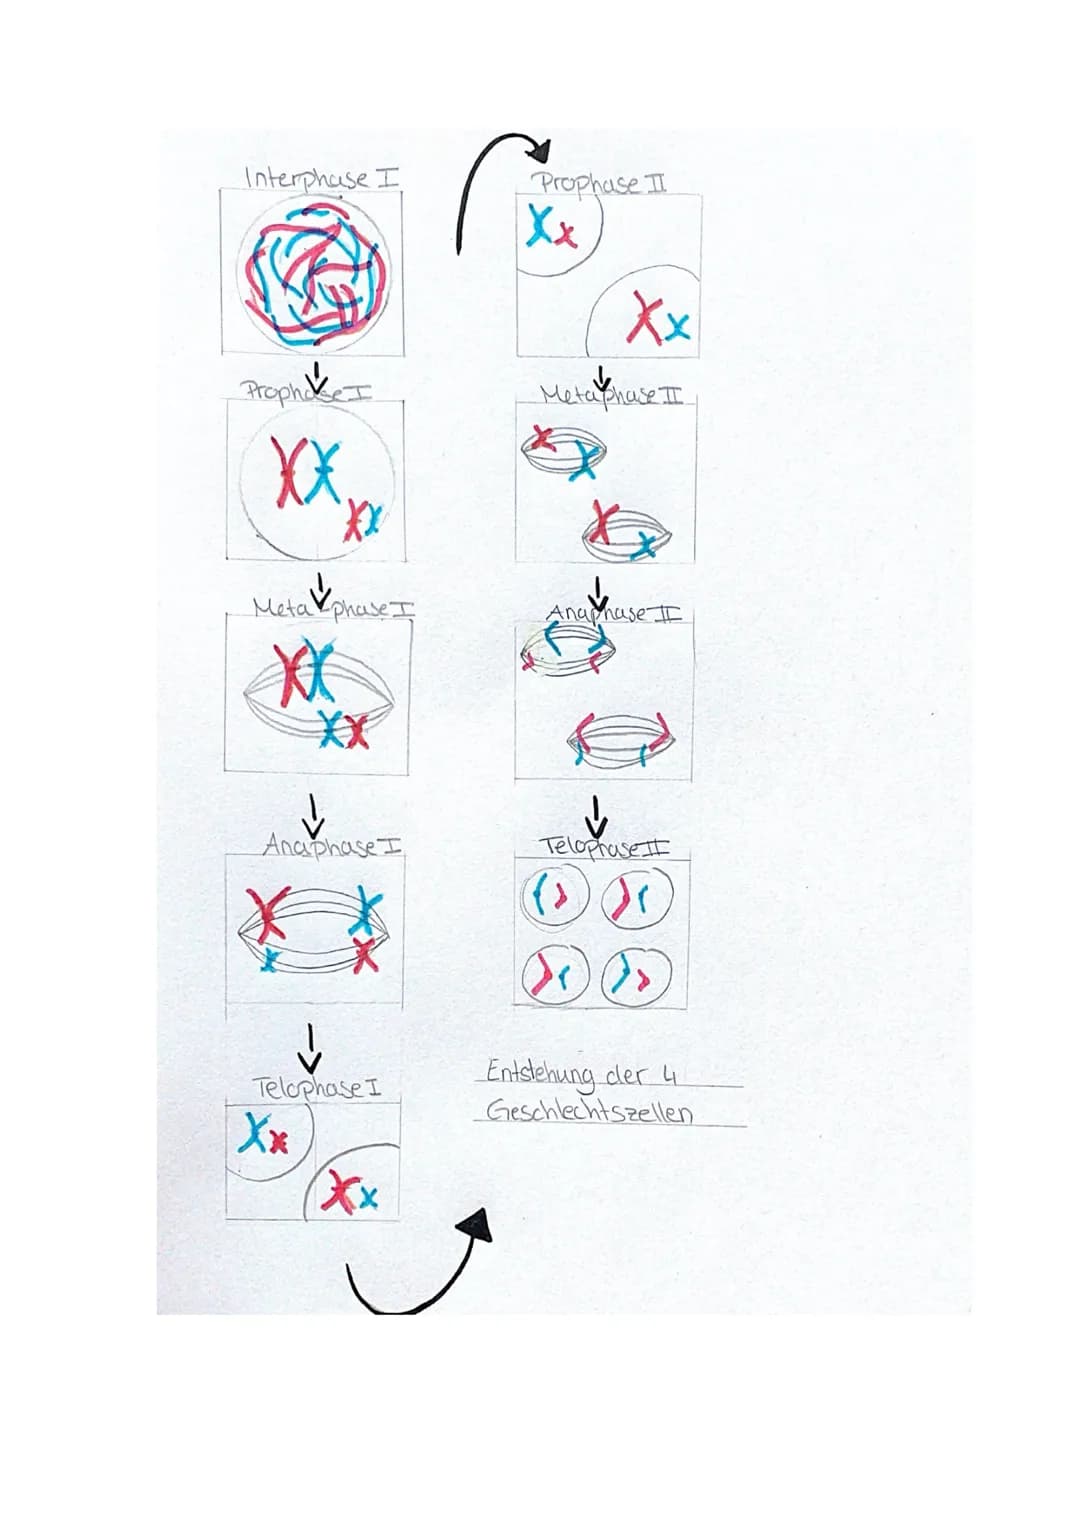 Interphase I
Prophase I
Metaphase I
Anaphase I
Telophase I
Prophase II
Metaphase II
Anaphase II
Telophase II
Entstehung der 4
Geschlechtszellen